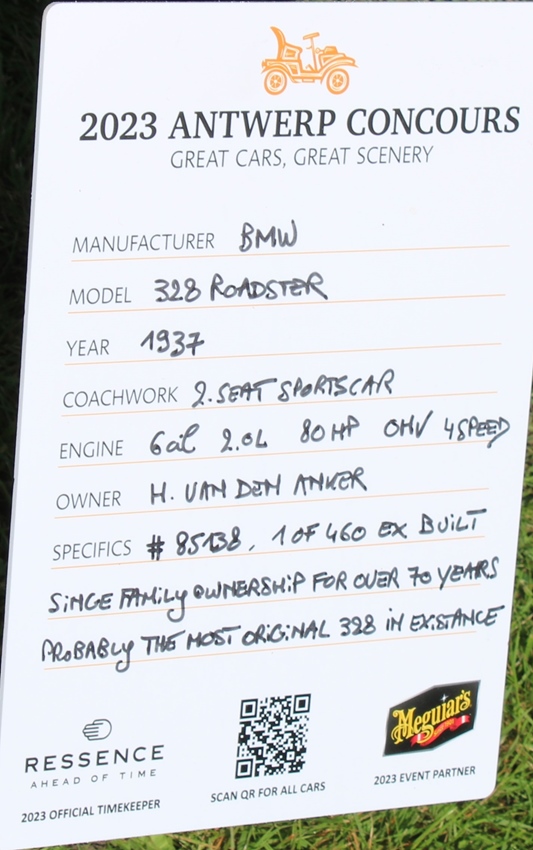 2023 ANTWERP CONCOURS
GREAT CARS, GREAT SCENERY
MANUFACTURER BMW
MODEL 328 ROADSTER
YEAR 1937
COACHWORK 2.SEAT SPORTSCAR
ENGINE 6cil 2.0L 80HP OHV 4SPEED
OWNER H. VAN DEN ANKER
SPECIFICS # 85138, 1 OF 460 EX BUILT
SINGE FAMILY OWNERSHIP FOR OVER 70 YEARS
PROBABLY THE MOST ORIGINAL 328 IN EXISTANCE
RESSENCE
AHEAD OF TIME
2023 OFFICIAL TIMEKEEPER
SCAN QR FOR ALL CARS
Meguiar's
2023 EVENT PARTNER